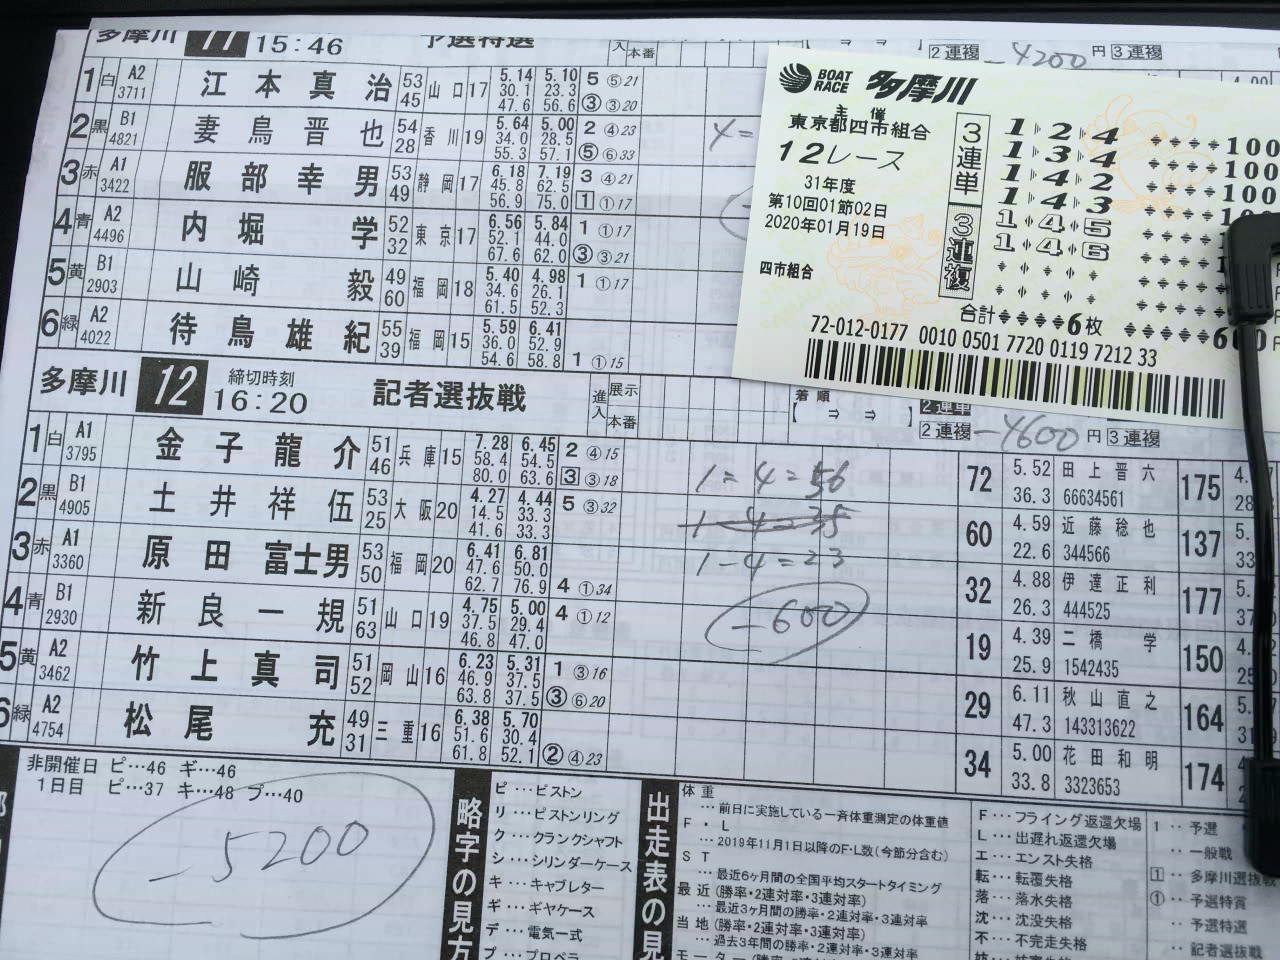 多摩川 11 15:46 予選特選 進入 本番
2連複 -4200 円 3連複
1 白 A2 3711 江本真治 53 45 山口 17 5.14 30.1 47.6 5.10 23.3 56.6 5 ⑤21 ③ ③20
2 黒 B1 4821 妻鳥晋也 54 28 香川 19 5.64 34.0 55.3 5.00 28.5 57.1 2 ④23 ⑤ ⑥33
3 赤 A1 3422 服部幸男 53 49 静岡 17 6.18 45.8 56.9 7.19 62.5 75.0 3 ④21 1 ①17
4 青 A2 4496 内堀学 52 32 東京 17 6.56 52.1 67.6 5.84 44.0 62.0 1 ①17 ③ ③21
5 黄 B1 2903 山崎毅 49 60 福岡 18 5.40 34.6 61.5 4.98 26.1 52.3 1 ①17
6 緑 A2 4022 待鳥雄紀 55 39 福岡 15 5.59 36.0 54.6 6.41 52.9 58.8 1 ①15
BOAT RACE 多摩川
主催
東京都四市組合
12レース
31年度
第10回01節02日
2020年01月19日
四市組合
3連単 3連複
1 2 4 100
1 3 4 100
1 4 2 100
1 4 3
1 4 5
1 4 6
合計 6枚
72-012-0177 0010 0501 7720 0119 7212 33
多摩川 12 締切時刻 16:20 記者選抜戦 進入 展示 本番
着順 【 ⇒ ⇒ 】
2連単
2連複 -4600 円 3連複
1 白 A1 3795 金子龍介 51 46 兵庫 15 7.28 58.4 80.0 6.45 54.5 63.6 2 ④15 3 ③18 1=4=56 72 5.52 36.3 田上晋六 66634561 175
2 黒 B1 4905 土井祥伍 53 25 大阪 20 4.27 14.5 41.6 4.44 33.3 33.3 5 ③32 1-4=35 60 4.59 22.6 近藤稔也 344566 137
3 赤 A1 3360 原田富士男 53 50 福岡 20 6.41 47.6 62.7 6.81 50.0 76.9 4 ①34 1-4=23 32 4.88 26.3 伊達正利 444525 177
4 青 B1 2930 新良一規 51 63 山口 19 4.75 37.5 46.8 5.00 29.4 47.0 4 ①12 -600 19 4.39 25.9 二橋学 1542435 150
5 黄 A2 3462 竹上真司 51 52 岡山 16 6.23 46.9 63.8 5.31 37.5 37.5 1 ③16 ③ ⑥20 29 6.11 47.3 秋山直之 143313622 164
6 緑 A2 4754 松尾充 49 31 三重 16 6.38 51.6 61.8 5.70 30.4 52.1 ② ④23 34 5.00 33.8 花田和明 3323653 174
非開催日 ピ…46 ギ…46
1日目 ピ…37 キ…48 プ…40
-5200
略字の見方
ピ…ピストン
リ…ピストンリング
ク…クランクシャフト
シ…シリンダーケース
キ…キャブレター
ギ…ギヤケース
デ…電気一式
プ…プロペラ
出走表の見
体重
…前日に実施している一斉体重測定の体重値
F・L
…2019年11月1日以降のF・L数(今節分含む)
ST
…最近6ヶ月間の全国平均スタートタイミング
最近(勝率・2連対率・3連対率)
…最近3ヶ月間の勝率・2連対率・3連対率
当地(勝率・2連対率・3連対率)
…過去3年間の勝率・2連対率・3連対率
F…フライング返還欠場
L…出遅れ返還欠場
エ…エンスト失格
転…転覆失格
落…落水失格
沈…沈没失格
不…不完走失格
1 …予選
…一般戦
1 …多摩川選抜戦
① …予選特賞
…予選特選
…記者選抜戦